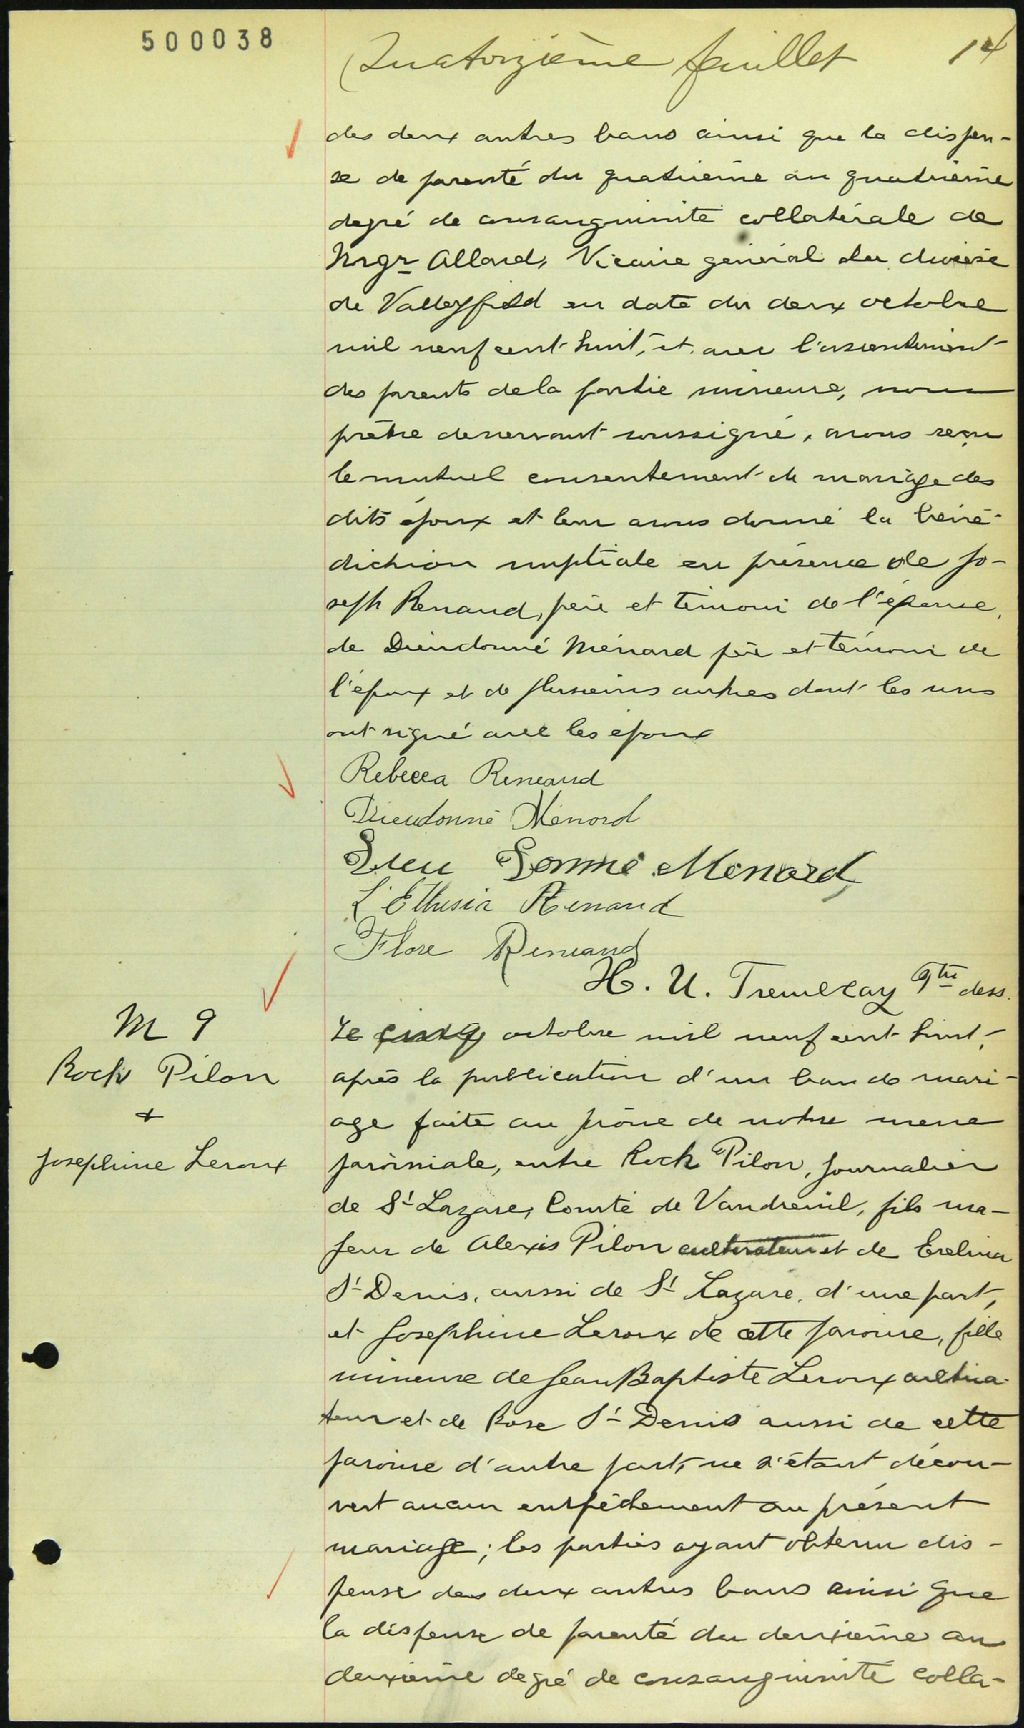 500038
Quatorzième feuillet 14
des deux autres bans ainsi que la dispen-
se de parenté du quatrième au quatrième
degré de consanguinité collatérale de
Mgr Allard, Vicaire général du diocèse
de Valleyfield en date du deux octobre
mil neuf cent huit, et avec l'assentiment
des parents de la partie mineure, nous
prêtre desservant soussigné, avons reçu
le mutuel consentement de mariage des
dits époux et leur avons donné la béné-
diction nuptiale en présence de Jo-
seph Renaud, père et témoin de l'épouse,
de Dieudonné Ménard père et témoin de
l'époux et de plusieurs autres dont les uns
ont signé avec les époux
Rebecca Reneaud
Dieudonné Menard
Dieu Donné Menard
L'Ethusia Renaud
Flore Reneaud
H. U. Tremblay Ptre dess.
M 9
Rock Pilon
+
Josephine Leroux
Le cinq octobre mil neuf cent huit,
après la publication d'un ban de mari-
age faite au prône de notre messe
paroissiale, entre Rock Pilon, journalier
de St Lazare, Comté de Vaudreuil, fils ma-
jeur de Alexis Pilon cultivateur et de Exelina
St Denis, aussi de St Lazare, d'une part,
et Josephine Leroux de cette paroisse, fille
mineure de Jean Baptiste Leroux cultiva-
teur et de Rose St Denis aussi de cette
paroisse d'autre part, ne s'étant décou-
vert aucun empêchement au présent
mariage; les parties ayant obtenu dis-
pense des deux autres bans ainsi que
la dispense de parenté du deuxième au
deuxième degré de consanguinité colla-